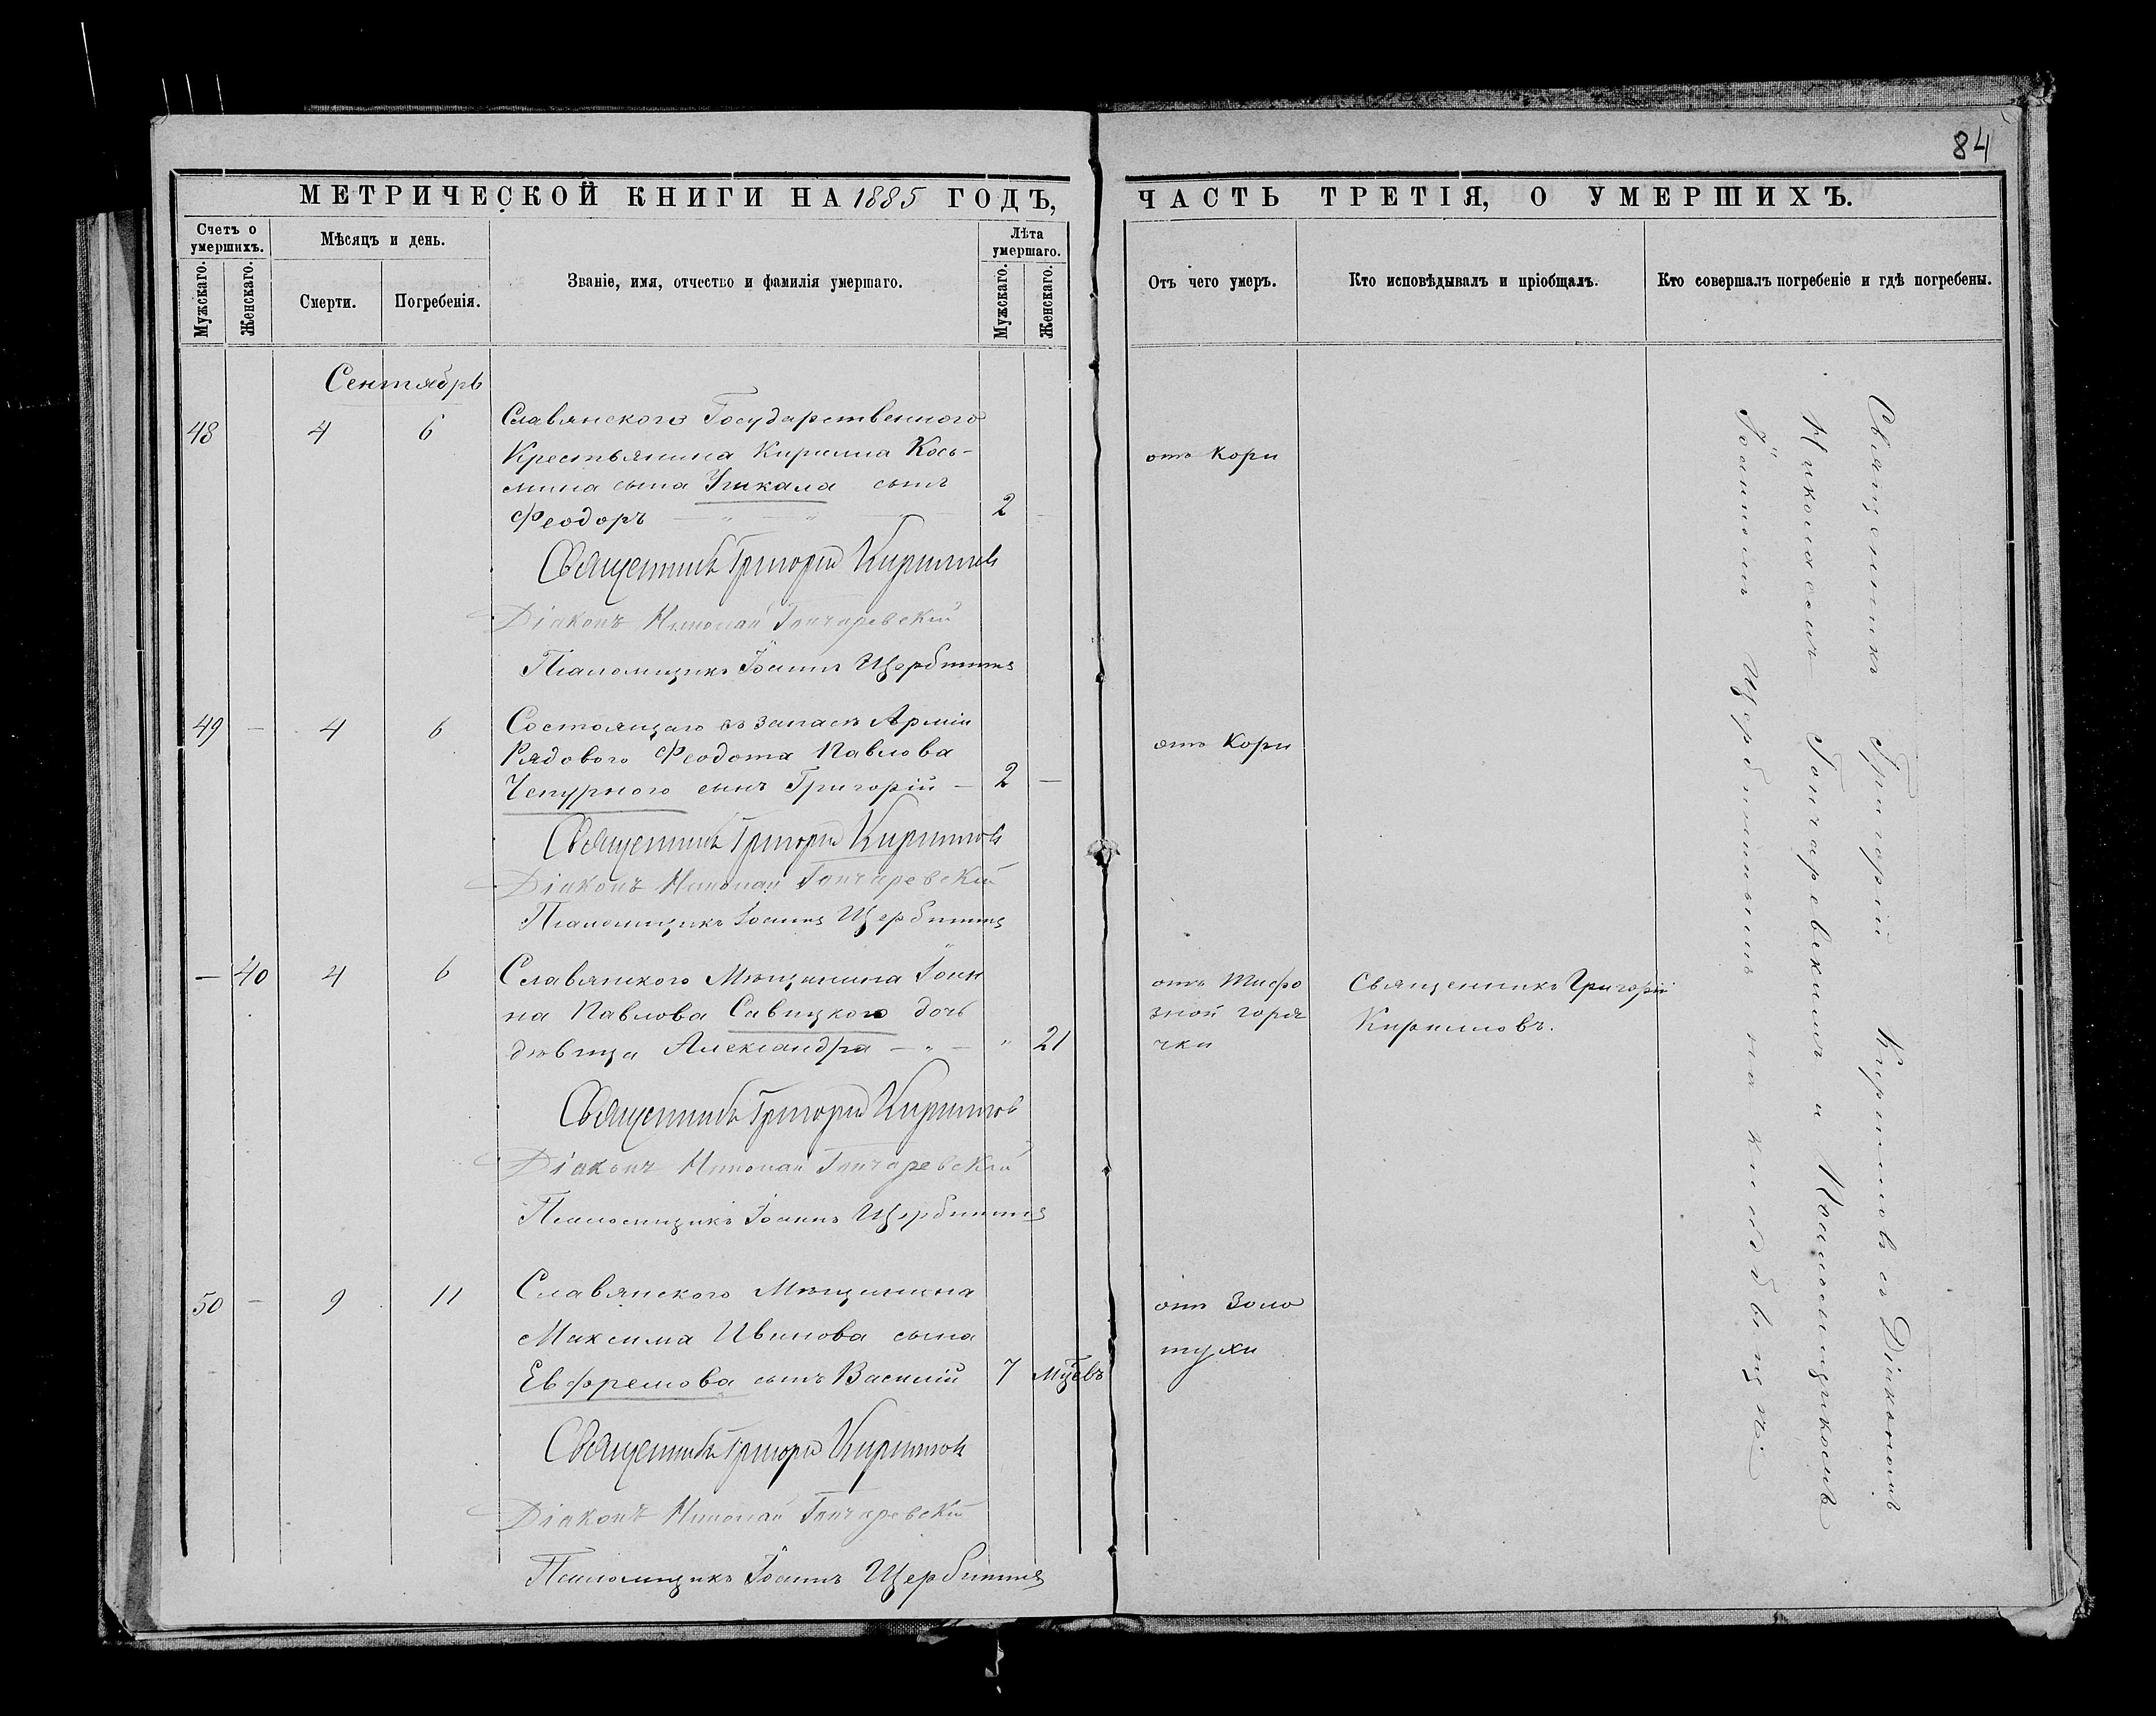 84
МЕТРИЧЕСКОЙ КНИГИ НА 1885 ГОДЪ,
ЧАСТЬ ТРЕТІЯ, О УМЕРШИХЪ.
Счетъ о умершихъ.
Мужскаго.
Женскаго.
Мѣсяцъ и день.
Смерти.
Погребенія.
Званіе, имя, отчество и фамилія умершаго.
Лѣта умершаго.
Мужскаго.
Женскаго.
Отъ чего умеръ.
Кто исповѣдывалъ и пріобщалъ.
Кто совершалъ погребеніе и гдѣ погребены.
Сентябрь
48 4 6 Славянского Государственного
Крестьянина Кирилла Кось-
мина сына сынъ
Феодоръ — „ — „ — 2 —
отъ Кори
Священникъ Григорій Кирилловъ
Діаконъ Николай Гончаревскій
Псаломщикъ Іоаннъ Щербининъ
49 — 4 6 Состоящаго въ запасѣ Арміи
Рядового Феодота Павлова
Чепурного сынъ Григорій — 2 —
отъ Кори
Священникъ Григорій Кирилловъ
Діаконъ Николай Гончаревскій
Псаломщикъ Іоаннъ Щербининъ
— 40 4 6 Славянского Мѣщанина Іоан
на Павлова Савицкого дочь
дѣвица Александра — „ — „ 21
отъ Тифо
зной горя
чки
Священникъ Григорій
Кирилловъ.
Священникъ Григорій Кирилловъ
Діаконъ Николай Гончаревскій
Псаломщикъ Іоаннъ Щербининъ
50 — 9 11 Славянского Мѣщанина
Максима Иванова сына
Евфремова сынъ Василій 7 мѣцевъ
отъ Золо
тухи
Священникъ Григорій Кирилловъ
Діаконъ Николай Гончаревскій
Псаломщикъ Іоаннъ Щербининъ
Священникъ Григорій Кирилловъ съ Діакономъ
Николаемъ Гончаревскимъ и Псаломщикомъ
Іоанномъ Щербининымъ на кладбищѣ.